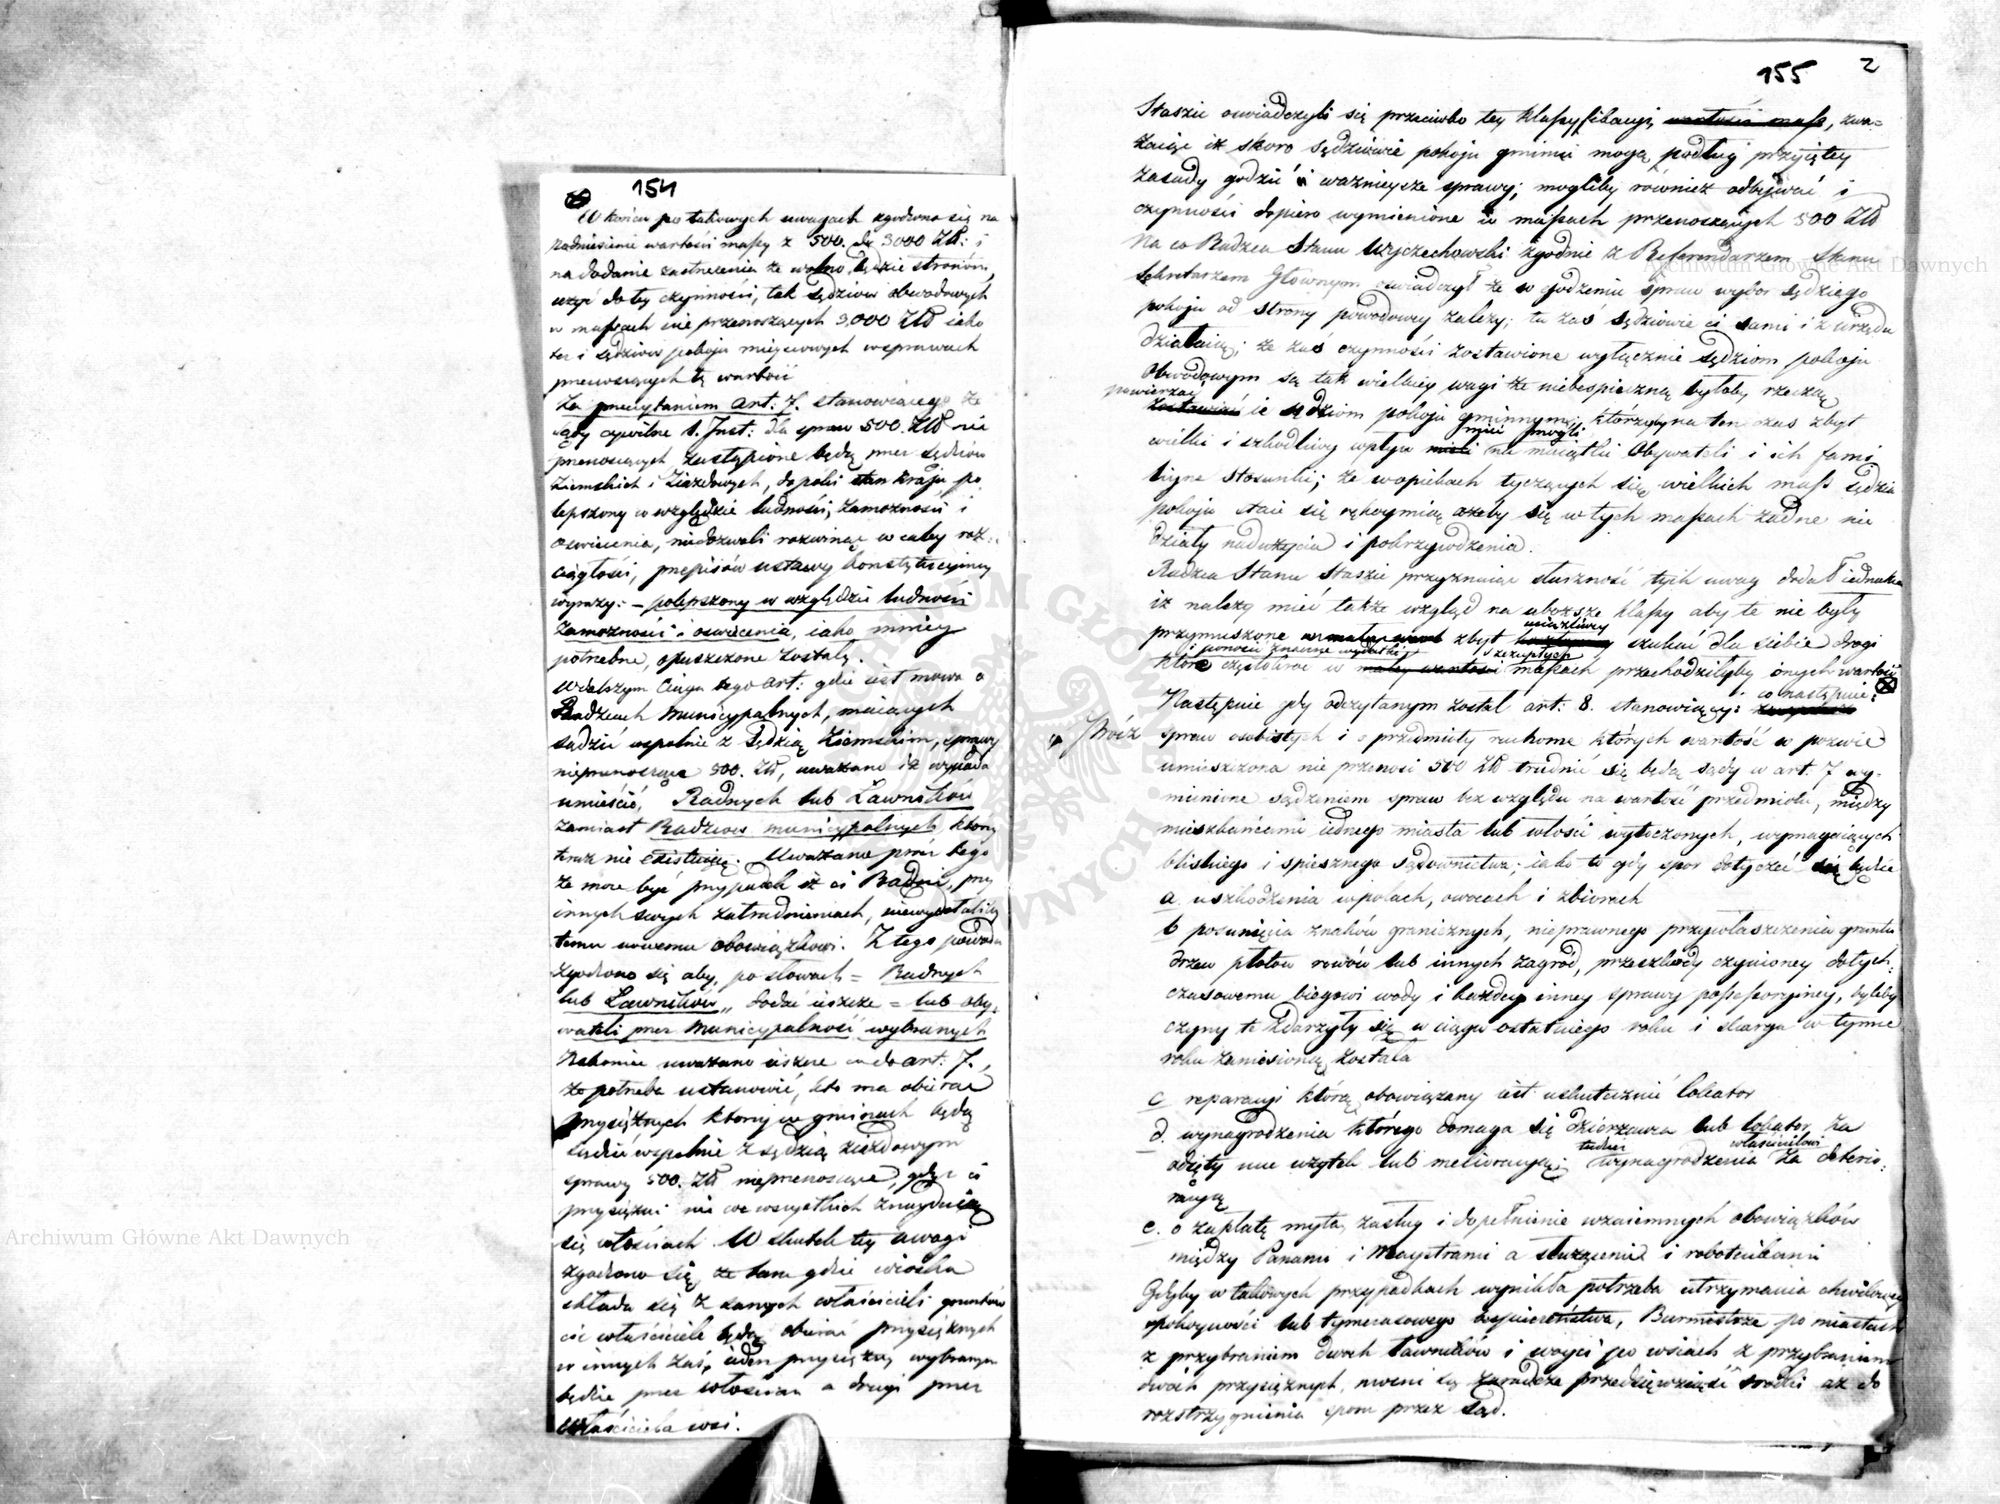 154
W końcu po takowych uwagach zgodzono się na
podniesienie wartości massy z 500. do 3000 Złł: i
na dodanie zastrzeżenia że wolno będzie stronom,
użyć do tey czynności, tak sędziów obwodowych
w massach nie przenoszących 3,000 Złł iako
też i sędziów pokoju mieyscowych w sprawach
przenoszących tę wartość
Za przeczytaniem art: 7. stanowiącego że
sądy cywilne 1. Inst: dla spraw 500. Złł nie
przenoszących zastąpione będą przez sędziów
Ziemskich i Ziazdowych, dopóki stan kraju po
lepszony w względzie ludności, zamożności i
oświecenia, niedozwoli rozwinąć w całey roz:
ciągłości, przepisów ustawy konstytucyiney
wyrazy: – polepszony w względzie ludności
zamożności i oświecenia, iako mniey
potrzebne, opuszczone zostały.
W dalszym ciągu tego art: gdzie iest mowa o
Radzcach Municypalnych, maiących
sądzić wspólnie z Sędzią Ziemskim, sprawy
nieprzenoszące 500. Złł, uważano iż wypada
umieścić, Radnych lub Ławników
zamiast Radzców municypalnych którzy
teraz nie existuią. Uważano prócz tego
że może być przypadek iż ci Radni, przy
innych swych zatrudnieniach, niewydołaliby
temu nowemu obowiązkowi. Z tego powodu
zgodzono się aby, po słowach = Radnych
lub Ławników „ dodać ieszcze = lub oby,
wateli przez Municypalność wybranych
Nakoniec uważano ieszcze co do art: 7.,
że potrzeba ustanowić, kto ma obierać
przysiężnych którzy w gminach będą
sądzić wspólnie z sędzią ziazdowym
sprawy 500. Złł nieprzenoszące, gdyż ci
przysiężni nie we wszystkich znayduią
się włościach. W skutek tey uwagi
zgodzono się, że tam gdzie wioska
składa się z samych właścicieli gruntów
ciż właściciele będą obierać przysiężnych
w innych zaś, ieden przysiężny wybranym
będzie przez włościan a drugi przez
właściciela wsi.
155 2
Staszic oświadczyli się przeciwko tey klassyfikacyi, wartości mass, zwa=
żaiąc iż skoro sędziowie pokoju gminni mogą podług przyiętey
zasady godzić i ważnieysze sprawy; mogliby również odbywać i
czynności dopiero wymienione w massach przenoszących 500 Złł
Na co Radzca Stanu Woyczechowski zgodnie z Referendarzem Stanu
Sekretarzem Głównym oświadczył że w godzeniu spraw wybór sędziego
pokoju od strony powodowey zależy; tu zaś sędziowie ci sami i z urzędu
działaią; że zaś czynności zostawione wyłącznie sędziom pokoju
Obwodowym są tak wielkiey wagi że niebespieczną byłoby rzeczą
powierzać
zostawiać ie sędziom pokoju gminnym, którzyby na ten czas zbyt
mieć mogli
wielki i szkodliwy wpływ mieli na maiątki Obywateli i ich fami
liyne stosunki; że w opiekach tyczących się wielkich mass sędzia
pokoju staie się rękoymią ażeby się w tych massach żadne nie
działy nadużycia i pokrzywdzenia.
Radzca Stanu Staszic przyznaiąc słuszność tych uwag dodał iednakże
iż należą mieć także wzgląd na uboższe klassy aby te nie były
uciążliwey
przymuszone zbyt szukać dla siebie drogi
i ponosić znaczne wydatki szczupłych
które częstokroć w małey wartości massach przechodziłyby onych wartość
co następuie:
Następnie gdy odczytanym został art: 8. stanowiący:
Prócz spraw osobistych i o przedmioty ruchome których wartość w pozwie
umieszczona nie przenosi 500 Złł trudnić się będą sądy w art: 7 wy-
mienione sądzeniem spraw bez względu na wartość przedmiotu, między
mieszkańcami iednego miasta lub włości wytoczonych, wymagaiących
bliskiego i spiesznego sądownictwa; iako to gdy spor dotyczeć się będzie
a. uszkodzenia w polach, owocach i zbiorach
b posunięcia znaków granicznych, nieprawnego przywłaszczenia gruntu
drzew płotów rowów lub innych zagród, przeszkody czynioney dotych:
czasowemu biegowi wody i każdey inney sprawy possessoryiney, byleby
czyny te zdarzyły się w ciągu ostatniego roku i skarga w tymże
roku zaniesioną została
c reparacyi którą obowiązany iest uskutecznić lokator
d. wynagrodzenia którego domaga się dzierżawca lub lokator za
tudzież właścicielowi
odięty mu użytek lub melioracyą; wynagrodzenia za deterio:
racyą
e. o zapłatę myta, zasług i dopełnienie wzaiemnych obowiązków
między Panami i Maystrami a służącemi i robotnikami
Gdyby w takowych przypadkach wynikła potrzeba utrzymania chwilowey
spokoyności lub tymczasowego bespieczeństwa, Burmistrze po miastach
z przybraniem dwóch ławników i wóyci po wsiach z przybraniem
dwóch przysiężnych, winni są zaradcze przedsięwziąść środki aż do
rozstrzygnienia sporu przez Sąd.
Archiwum Główne Akt Dawnych
Archiwum Główne Akt Dawnych